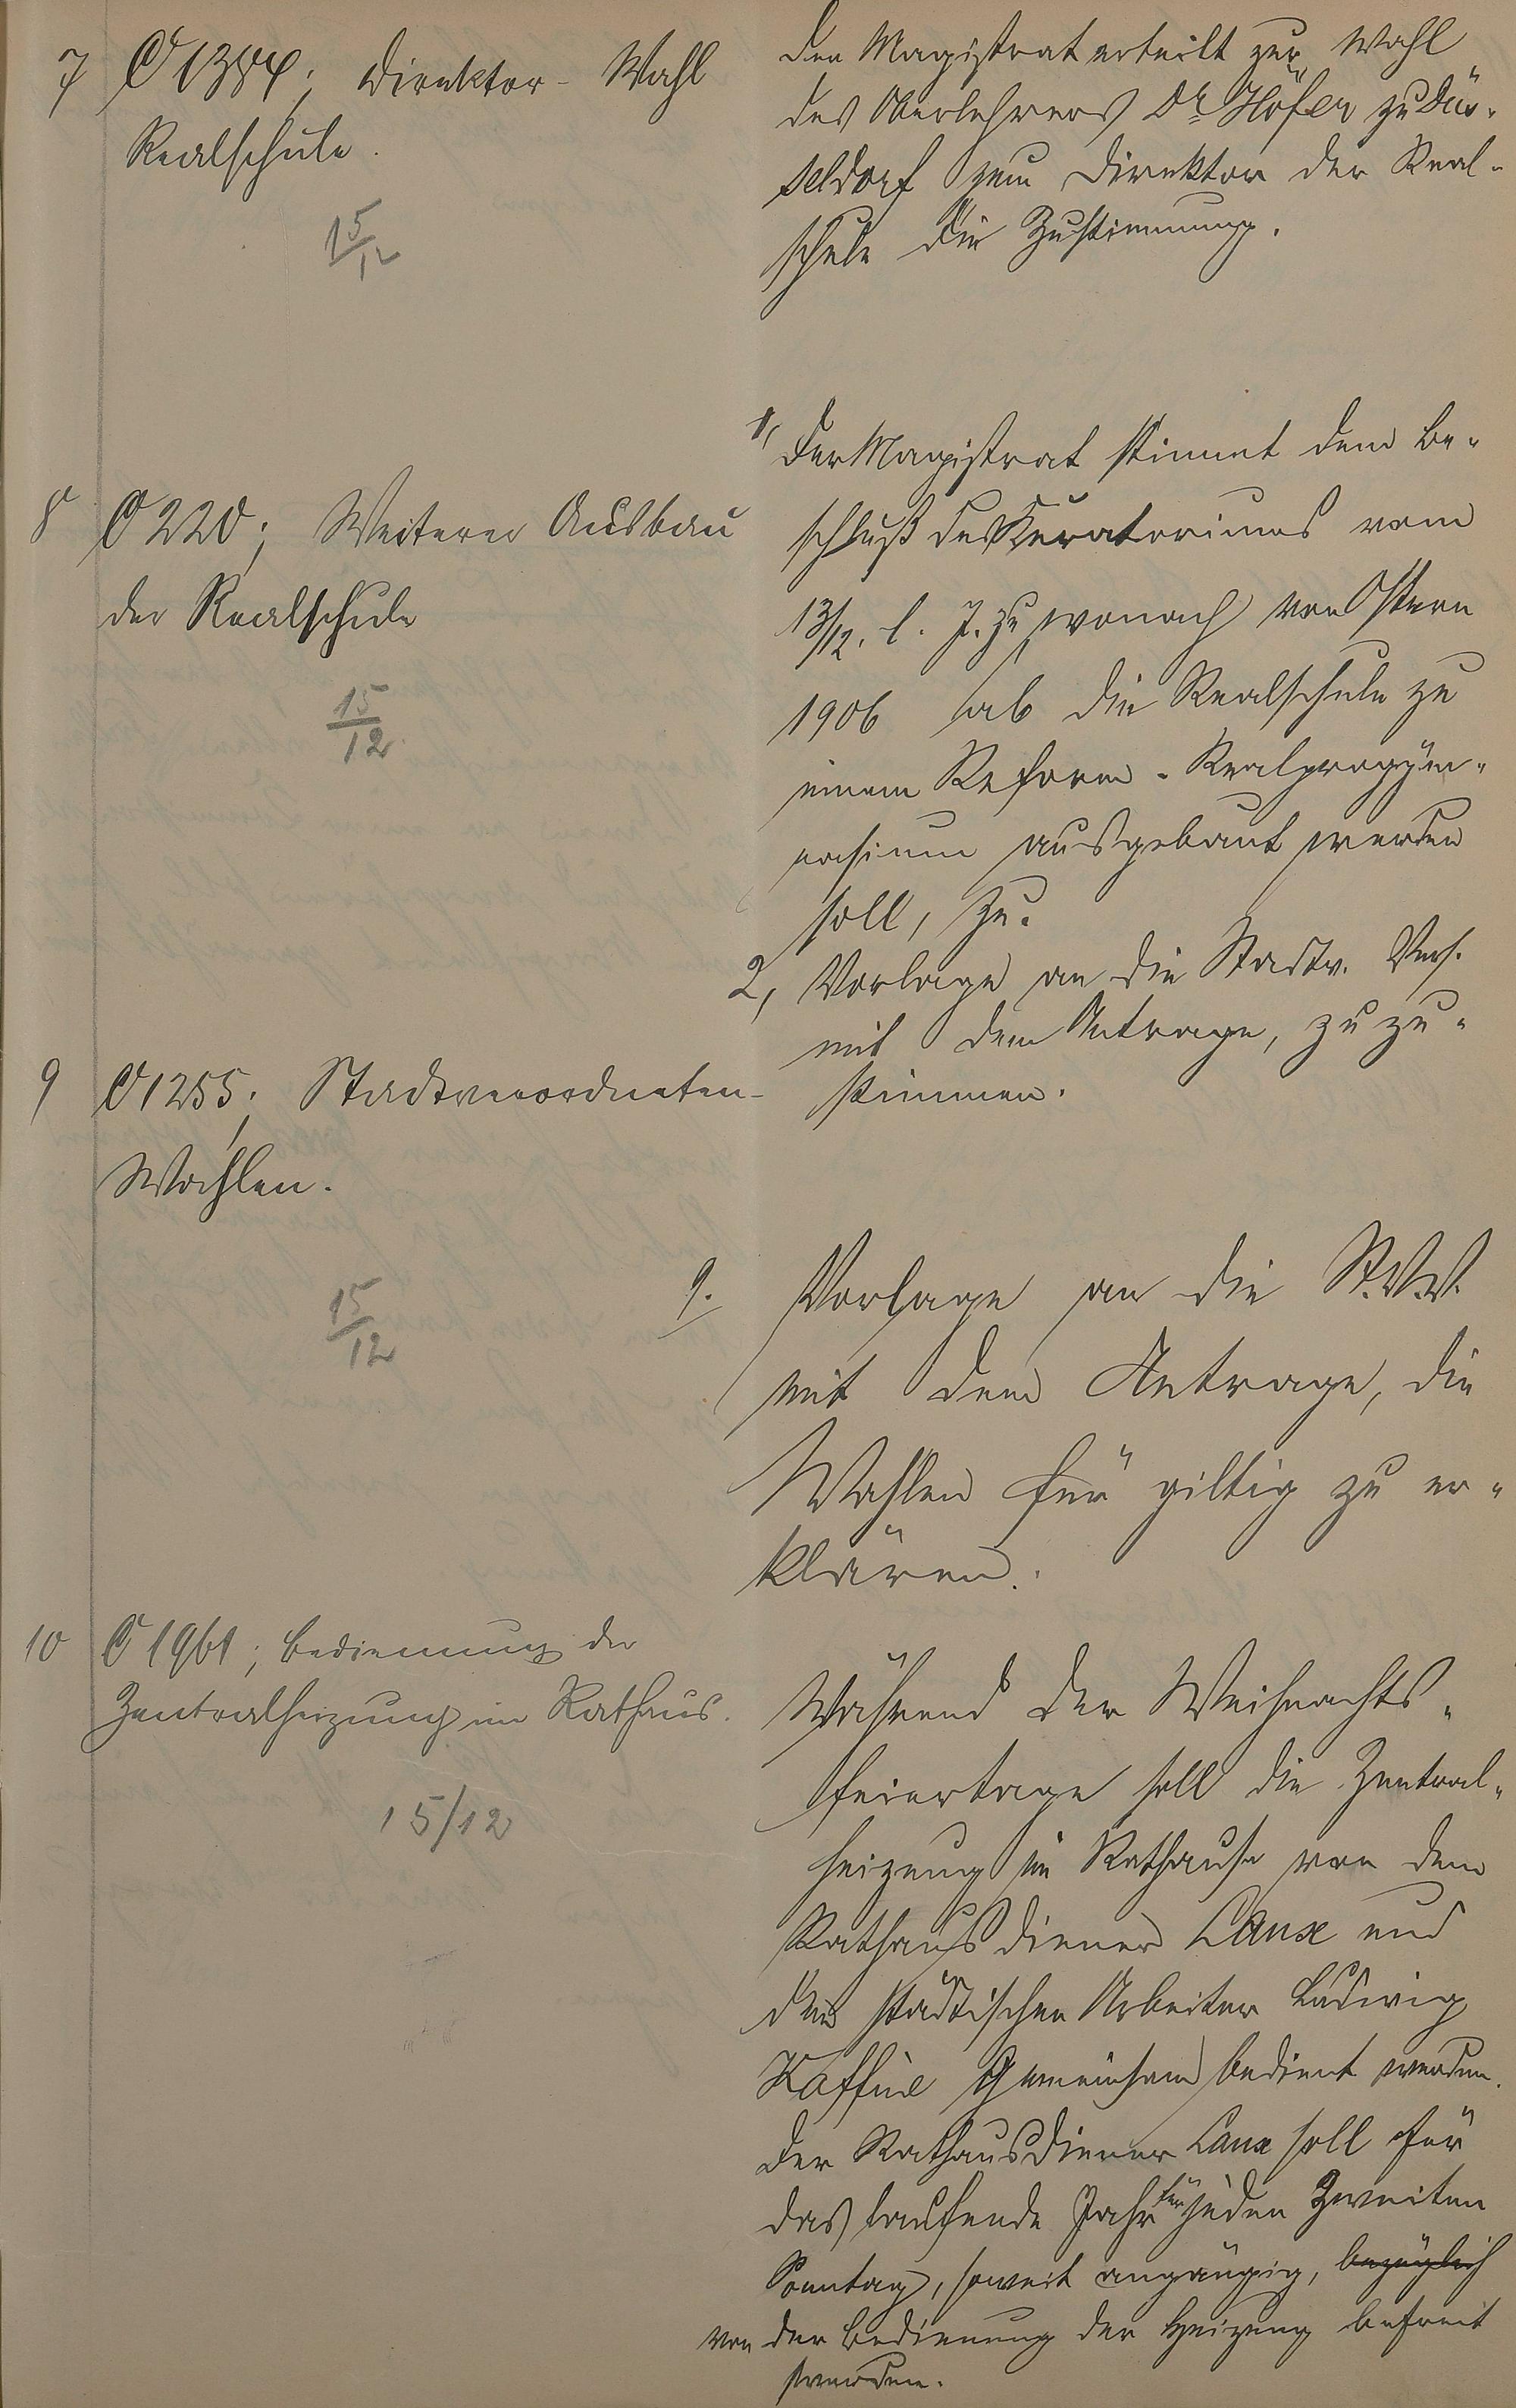 7 C 1384; Direktor-Wahl
Realschule.
15/12
Der Magistrat erteilt zur Wahl
des Oberlehrers Dr Höfer zu Düs-
seldorf zum Direktor der Real-
schule die Zustimmung.
8 C 220; Weiterer Ausbau
der Realschule
15/12
1, Der Magistrat stimmt dem Be-
schluß des Kuratoriums vom
13/12. l. J. zu, wonach von Ostern
1906 ab die Realschule zu
einem Reform-Realprogym-
nasium ausgebaut werden
soll, zu.
2, Vorlage an die Stadtv. Vers.
mit dem Antrage, zuzu-
stimmen.
9 C 1255; Stadtverordneten-
Wahlen.
15/12
9. Vorlage an die St.V.V.
mit dem Antrage, die
Wahlen für giltig zu er-
klären.
10 C 1961; Bedienung der
Zentralheizung im Rathaus.
15/12
Während der Weihnachts-
feiertage soll die Zentral-
heizung im Rathause von dem
Rathausdiener Laux und
dem städtischen Arbeiter Ludwig
gemeinsam bedient werden.
Der Rathausdiener Laux soll für
das laufende Jahr für jeden zweiten
Sonntag, soweit angängig, bezüglich
von der Bedienung der Heizung befreit
werden.